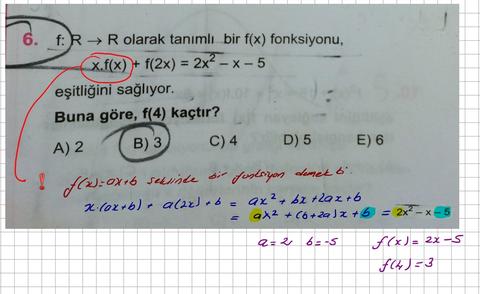 6. f: R → R olarak tanımlı bir f(x) fonksiyonu,
x.f(x) + f(2x) = 2x² – x – 5
eşitliğini sağlıyor.
Buna göre, f(4) kaçtır?
A) 2 B) 3 C) 4 D) 5 E) 6
! f(x)=ax+b şeklinde bir fonksiyon demek ki
x.(ax+b) + a(2x)+b = ax²+bx+2ax+b
= ax²+(b+2a)x+b = 2x² – x – 5
a=2 b=-5 f(x) = 2x-5
f(4)=3